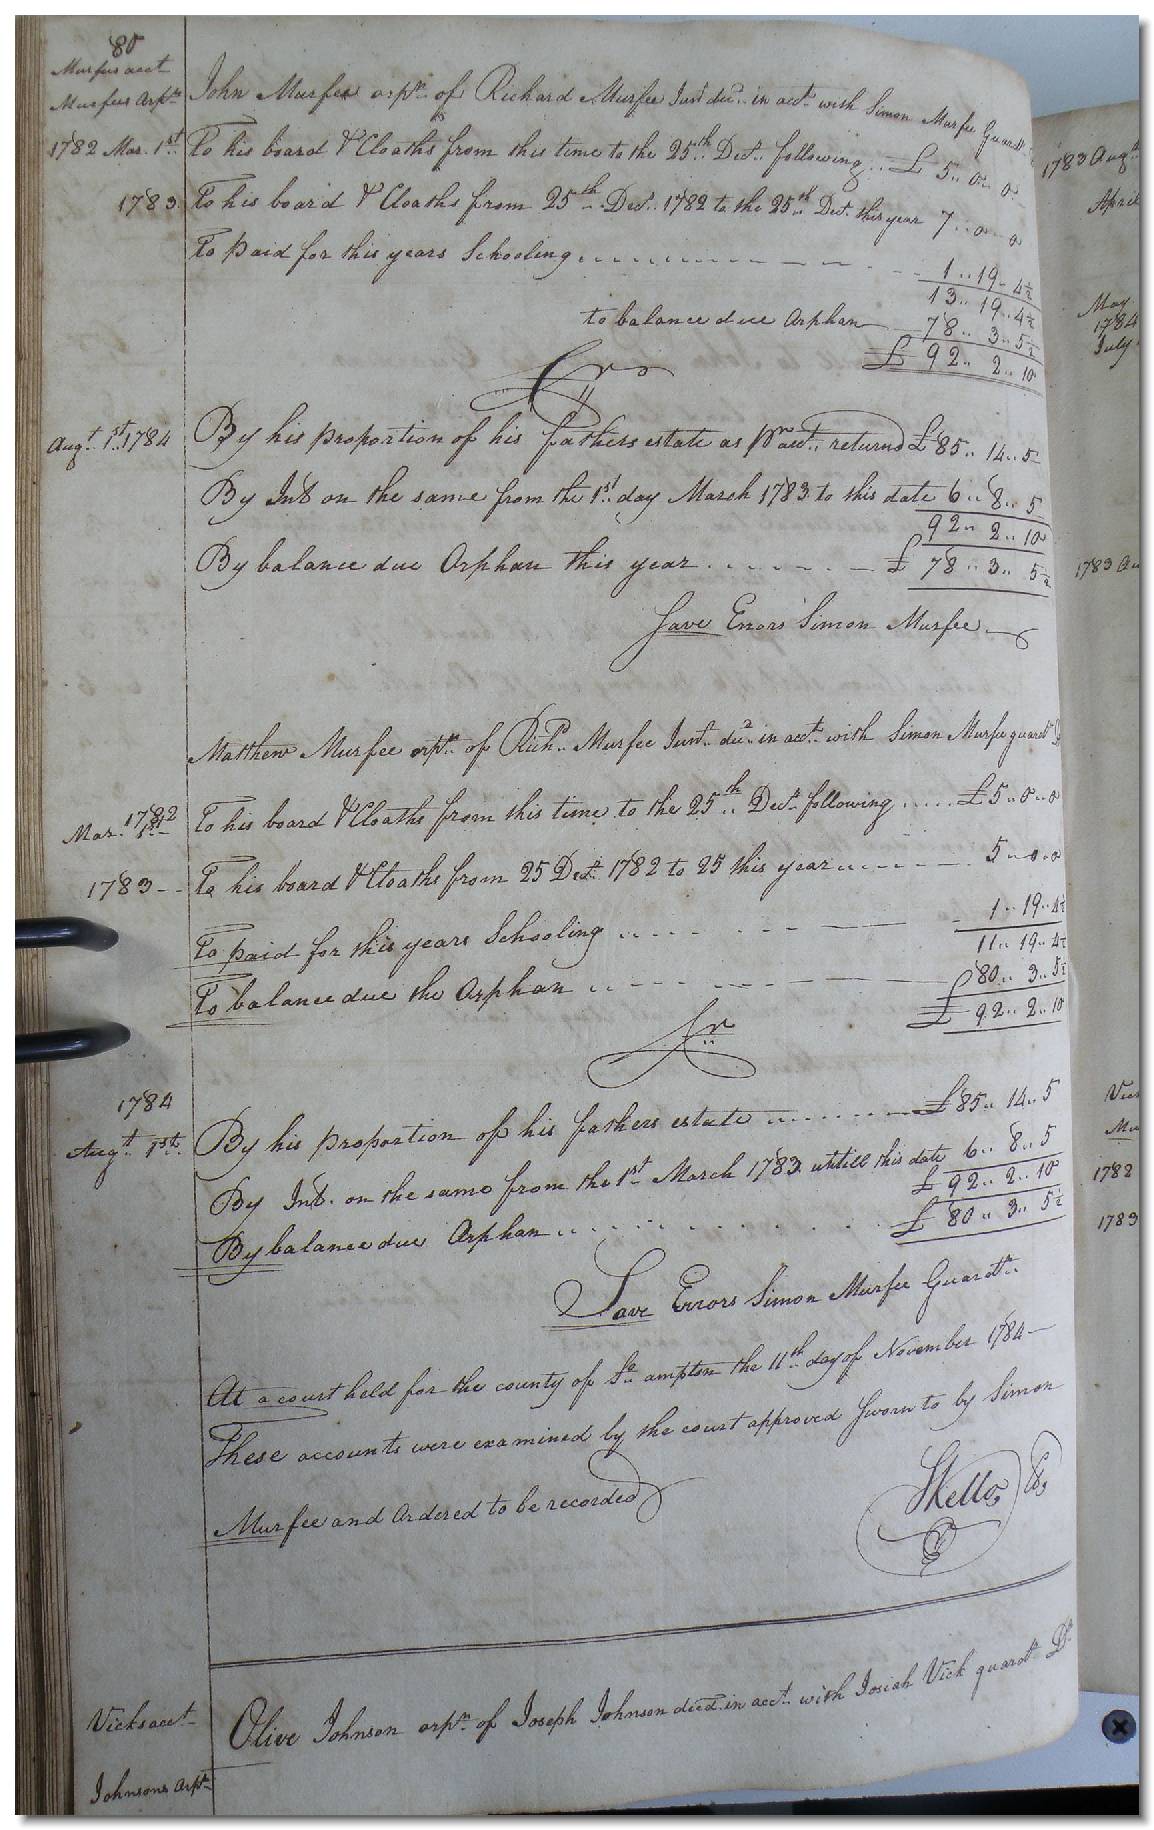 80
Murfees acct
Murfees Orpns
John Murfee orpn. of Richard Murfee Junr. decd. in acct. with Simon Murfee Guardn.
1782 Mar. 1st To his board & Cloaths from this time to the 25th Decr. following .. £ 5.. 0.. 0
1783 To his board & Cloaths from 25th Decr. 1782 to the 25th Decr. this year 7 .. 0 .. 0
To paid for this years Schooling 1 .. 19 .. 4½
13 .. 19 .. 4½
to balance due Orphan 78 .. 3 .. 5½
£ 92 .. 2 .. 10
Cr
Augt. 1st. 1784 By his proportion of his fathers estate as pr. acct. returnd £ 85 .. 14 .. 5
By Int. on the same from the 1st. day March 1783 to this date 6 .. 8 .. 5
92 .. 2 .. 10
By balance due Orphan this year £ 78 .. 3 .. 5½
Save Errors Simon Murfee
Matthew Murfee orpn. of Richd. Murfee Junr. decd. in acct. with Simon Murfee guardn. Dr
1782
Mar. 1st To his board & Cloaths from this time to the 25th Decr. following .... £ 5 .. 0 .. 0
1783 To his board & Cloaths from 25 Decr. 1782 to 25 this year 5 .. 0 .. 0
To paid for this years Schooling 1 .. 19 .. 4½
11 .. 19 .. 4½
To balance due the Orphan 80 .. 3 .. 5½
£ 92 .. 2 .. 10
Cr
1784
Augt. 1st. By his proportion of his fathers estate £ 85 .. 14 .. 5
By Int. on the same from the 1st March 1783 untill this date 6 .. 8 .. 5
£ 92 .. 2 .. 10
By balance due Orphan £ 80 .. 3 .. 5½
Save Errors Simon Murfee Guardn.
At a court held for the county of So. ampton the 11th. day of November 1784
These accounts were examined by the court approved Sworn to by Simon
Murfee and Ordered to be recorded
SKello
Vicks acct
Johnsons Orpn.
Olive Johnson orpn. of Joseph Johnson decd. in acct. with Josiah Vick guardn. Dr.
1783 Augt
April
May
1784
July
1783 Au
Vic
1782
1783